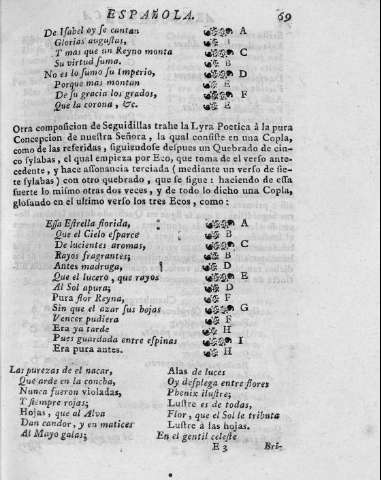 ESPAÑOLA. 69
De Isabel oy se cantan A
Glorias augustas,
Y mas que un Reyno monta C
Su virtud suma. B
No es lo sumo su Imperio, D
Porque mas montan E
De su gracia los grados, F
Que la corona, &c. E
Otra composicion de Seguidillas trahe la Lyra Poetica à la pura
Concepcion de nuestra Señora, la qual consiste en una Copla,
como de las referidas, siguiendose despues un Quebrado de cin-
co sylabas, el qual empieza por Eco, que toma de el verso ante-
cedente, y hace assonancia terciada (mediante un verso de sie-
te sylabas) con otro quebrado, que se sigue: haciendo de essa
suerte lo mismo otras dos veces, y de todo lo dicho una Copla,
glosando en el ultimo verso los tres Ecos, como:
Essa Estrella florida, A
Que el Cielo esparce B
De lucientes aromas, C
Rayos fragrantes; B
Antes madruga, D
Que el lucero, que rayos E
Al Sol apura; D
Pura flor Reyna, F
Sin que el azar sus hojas G
Vencer pudiera F
Era ya tarde H
Pues guardada entre espinas I
Era pura antes. H
Las purezas de el nacar,
Que arde en la concha,
Nunca fueron violadas,
Y siempre rojas;
Hojas, que al Alva
Dan candor, y en matices
Al Mayo galas;
Alas de luces
Oy desplega entre flores
Phenix ilustre;
Lustre es de todas,
Flor, que el Sol le tributa
Lustre à las hojas.
En el gentil celeste
E 3 Bri-